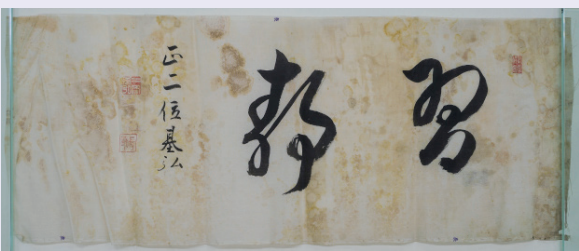 習静
正二位基弘